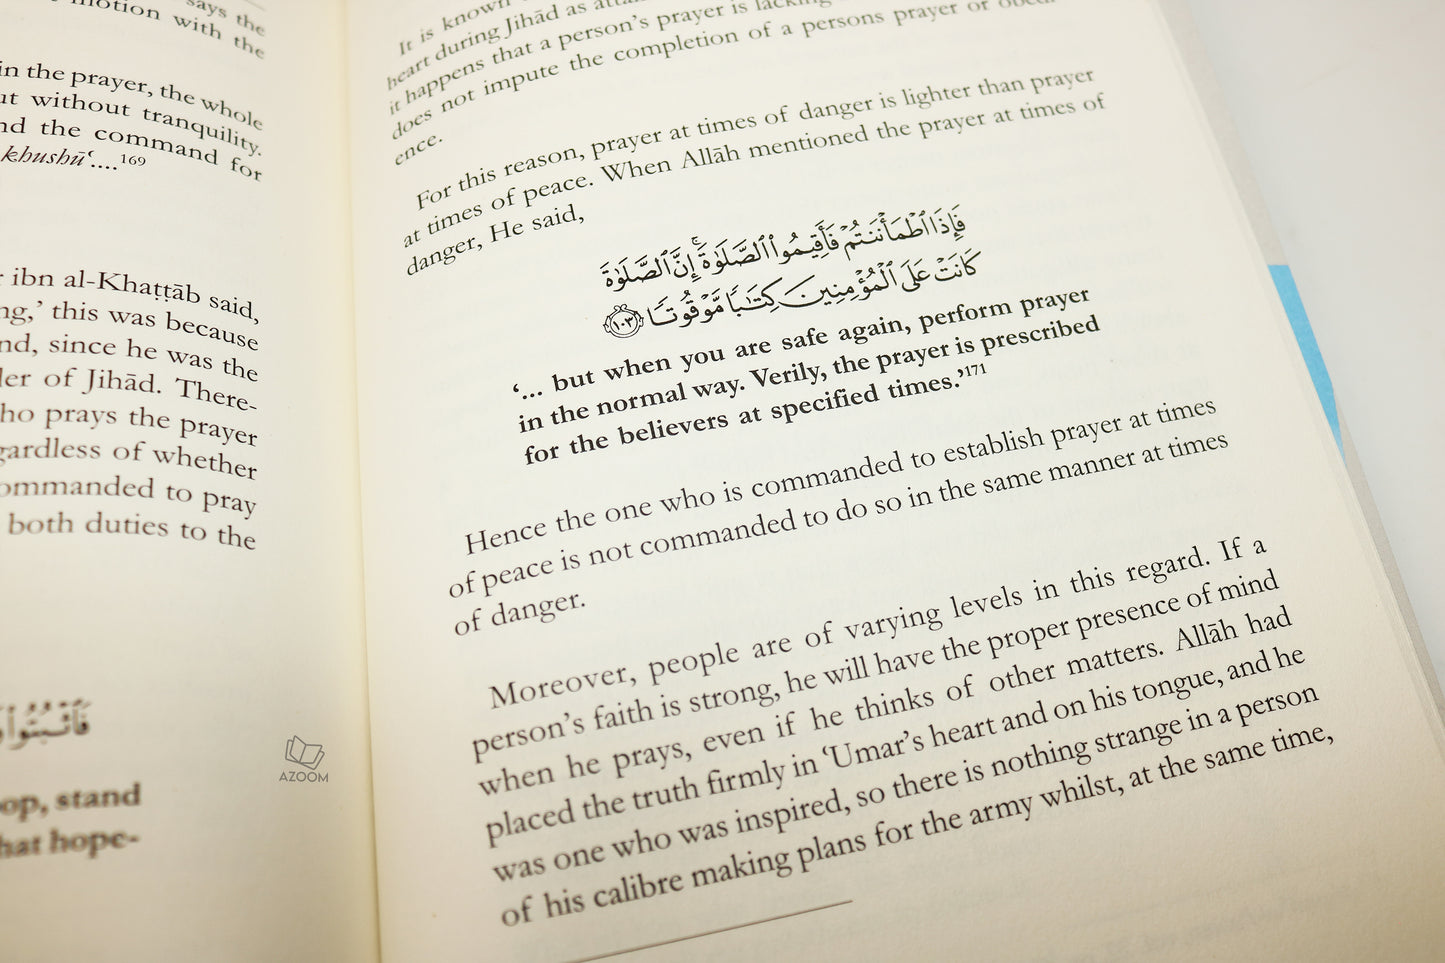 says the
motion with the
in the prayer, the whole
without tranquility.
the command for
khushū‘....169
ibn al-Khaṭṭāb said,
this was because
since he was the
of Jihād. There-
prays the prayer
of whether
to pray
both duties to the
stand
hope-
AZOOM
It is known
heart during Jihād as
it happens that a person’s prayer is lacking
does not impute the completion of a persons prayer or
ence.
For this reason, prayer at times of danger is lighter than prayer
at times of peace. When Allāh mentioned the prayer at times of
danger, He said,
فَإِذَا ٱطْمَأْنَنتُمْ فَأَقِيمُوا۟ ٱلصَّلَوٰةَ ۚ إِنَّ ٱلصَّلَوٰةَ
كَانَتْ عَلَى ٱلْمُؤْمِنِينَ كِتَـٰبًا مَّوْقُوتًا ١٠٣
‘... but when you are safe again, perform prayer
in the normal way. Verily, the prayer is prescribed
for the believers at specified times.’171
Hence the one who is commanded to establish prayer at times
of peace is not commanded to do so in the same manner at times
of danger.
Moreover, people are of varying levels in this regard. If a
person’s faith is strong, he will have the proper presence of mind
when he prays, even if he thinks of other matters. Allāh had
placed the truth firmly in ‘Umar’s heart and on his tongue, and he
was one who was inspired, so there is nothing strange in a person
of his calibre making plans for the army whilst, at the same time,